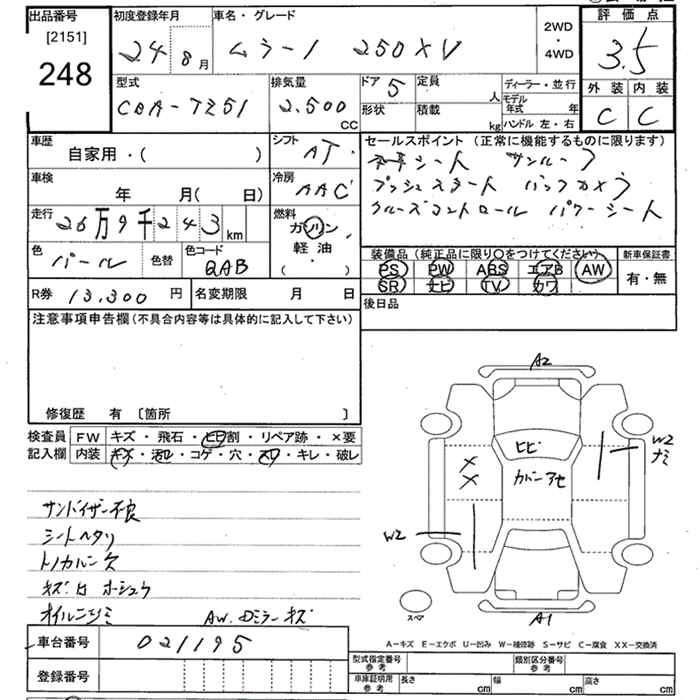 出品番号 初度登録年月 車名・グレード 2WD 評価点
[2151]
248 24 8月 ムラーノ 250XV ・4WD 3.5
型式 排気量 ドア 5 定員 人 ディーラー・並行 外装 内装
モデル年式 年
CBA-TZ51 2.500 CC 形状 積載 kg ハンドル 左・右 C C
車歴 シフト セールスポイント(正常に機能するものに限ります)
自家用・( ) AT シート サンルーフ
車検 冷房 プッシュスタート バックカメラ
年 月(日) AAC クルーズコントロール パワーシート
走行 26万9千243km 燃料
ガソリン
軽油
( ・ )
色 パール 色替 色コード QAB
装備品(純正品に限り○をつけてください) 新車保証書
PS PW ABS エアB AW 有・無
SR ナビ TV カワ
R券 13,300円 名変期限 月 日
後日品
注意事項申告欄(不具合内容等は具体的に記入して下さい)
修復歴 有 [箇所 ]
検査員 FW キズ・飛石・ヒビ割・リペア跡・×要
記入欄 内装 キズ・汚レ・コゲ・穴・スレ・キレ・破レ
サンバイザー不良
シートヘタリ
トノカバー欠
キズ凹 ホシュウ
オイルニジミ AW.Dミラーキズ
A2
ヒビ
W2
ナミ
カバーアセ
W2
スペア
A1
A-キズ E-エクボ U-凹み W-補修跡 S-サビ C-腐食 XX-交換済
車台番号 021195
登録番号
型式指定番号 参考 類別区分番号 参考
車庫証明用 参考 長さ cm 幅 cm 高さ cm